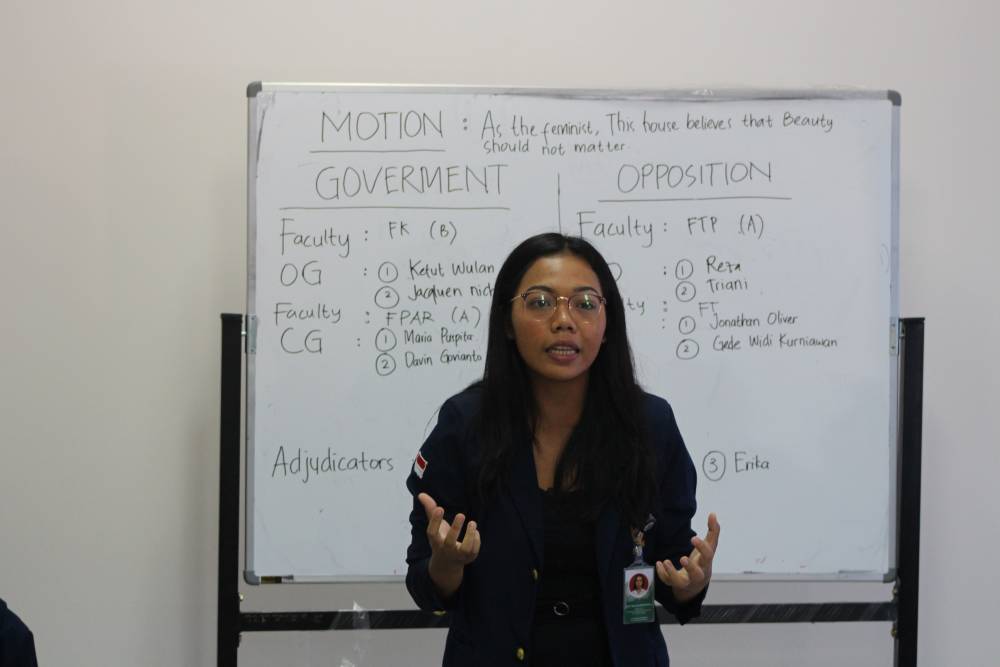 MOTION : As the feminist, This house believes that Beauty
should not matter.
GOVERMENT
OPPOSITION
Faculty : FK (B)
OG : 1 Ketut Wulan
2 Jacquen
Faculty : FPAR (A)
CG : 1 Maria Puspita
2 Davin Govianto
Faculty : FTP (A)
: 1 Reza
2 Triani
: FT
: 1 Jonathan Oliver
2 Gede Widi Kurniawan
Adjudicators
3 Erika